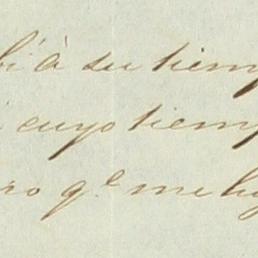 bí à su tiemp
cuyo tiemp
ro q.e me ha